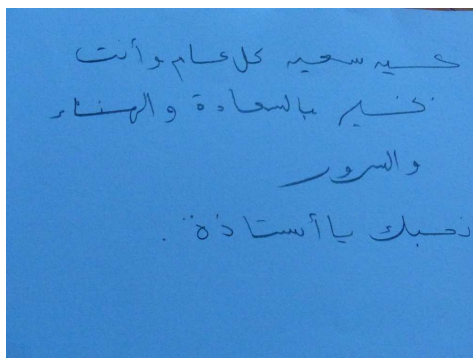 عيد سعيد كل عام وأنت
بخير بالسعادة والهناء
والسرور
نحبك يا أستاذة.